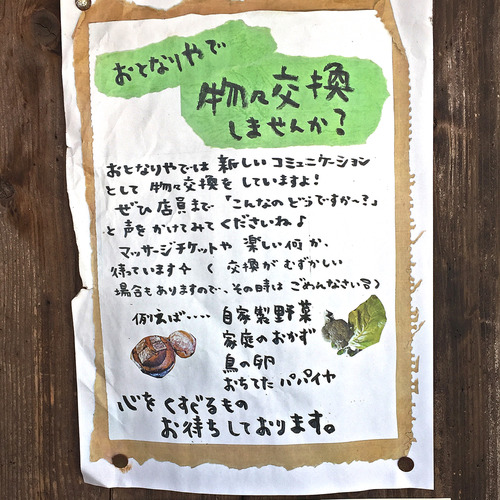 おとなりやで
物々交換
しませんか?
おとなりやでは 新しいコミュニケーション
として 物々交換を していますよ!
ぜひ店員まで「こんなの どうですか〜?」
と声をかけてみてくださいね♪
マッサージチケットや 楽しい何か、
待っています✧ ( 交換がむずかしい
場合もありますので、その時は ごめんなさい)
例えば‥‥ 自家製野菜
家庭のおかず
鳥の卵
おちてた パパイヤ
心をくすぐるもの
お待ちしております。